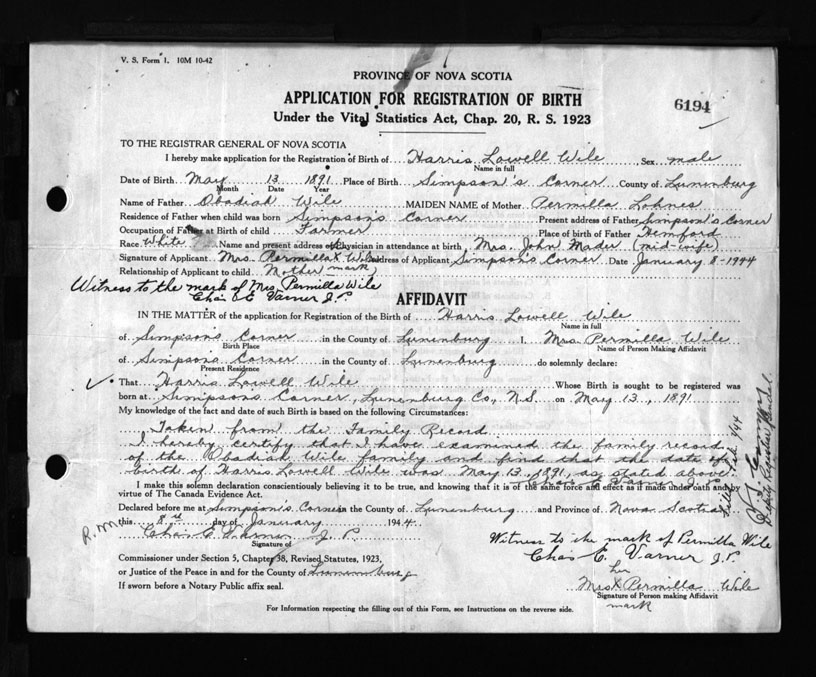 V. S. Form 1. 10M 10-42
PROVINCE OF NOVA SCOTIA
APPLICATION FOR REGISTRATION OF BIRTH
6194
Under the Vital Statistics Act, Chap. 20, R. S. 1923
TO THE REGISTRAR GENERAL OF NOVA SCOTIA
I hereby make application for the Registration of Birth of Harris Lowell Wile Sex male
Name in full
Date of Birth May 13 1891 Place of Birth Simpson's Corner County of Lunenburg
Month Date Year
Name of Father Obadiah Wile MAIDEN NAME of Mother Permilla Lohnes
Residence of Father when child was born Simpson's Corner Present address of Father Simpson's Corner
Occupation of Father at Birth of child Farmer Place of birth of Father Hemford
Race White Name and present address of Physician in attendance at birth, Mrs. John Mader (mid-wife)
Signature of Applicant Mrs. Permilla X Wile Address of Applicant Simpson's Corner Date January 8-1944
Relationship of Applicant to child Mother mark
Witness to the mark of Mrs Permilla Wile
Chas E Varner J.P.
AFFIDAVIT
IN THE MATTER of the application for Registration of the Birth of Harris Lowell Wile
Name in full
of Simpson's Corner in the County of Lunenburg I, Mrs Permilla Wile
Birth Place Name of Person Making Affidavit
of Simpson's Corner in the County of Lunenburg do solemnly declare:
Present Residence
That Harris Lowell Wile Whose Birth is sought to be registered was
born at Simpsons Corner, Lunenburg Co, N.S. on May 13, 1891
My knowledge of the fact and date of such Birth is based on the following Circumstances:
Taken from the Family Record
I hereby certify that I have examined the family record
of the Obadiah Wile family and find that the date of
birth of Harris Lowell Wile was May 13, 1891, as stated above.
Chas E Varner J.P.
I make this solemn declaration conscientiously believing it to be true, and knowing that it is of the same force and effect as if made under oath and by
virtue of The Canada Evidence Act.
Declared before me at Simpson's Corner in the County of Lunenburg and Province of Nova Scotia
this 8th day of January 1944
Chas E Varner J. P.
Signature of
Witness to the mark of Permilla Wile
Chas E. Varner J.P.
Commissioner under Section 5, Chapter 38, Revised Statutes, 1923,
or Justice of the Peace in and for the County of Lunenburg
her
Mrs X Permilla Wile
If sworn before a Notary Public affix seal.
Signature of Person making Affidavit
mark
For Information respecting the filling out of this Form, see Instructions on the reverse side.